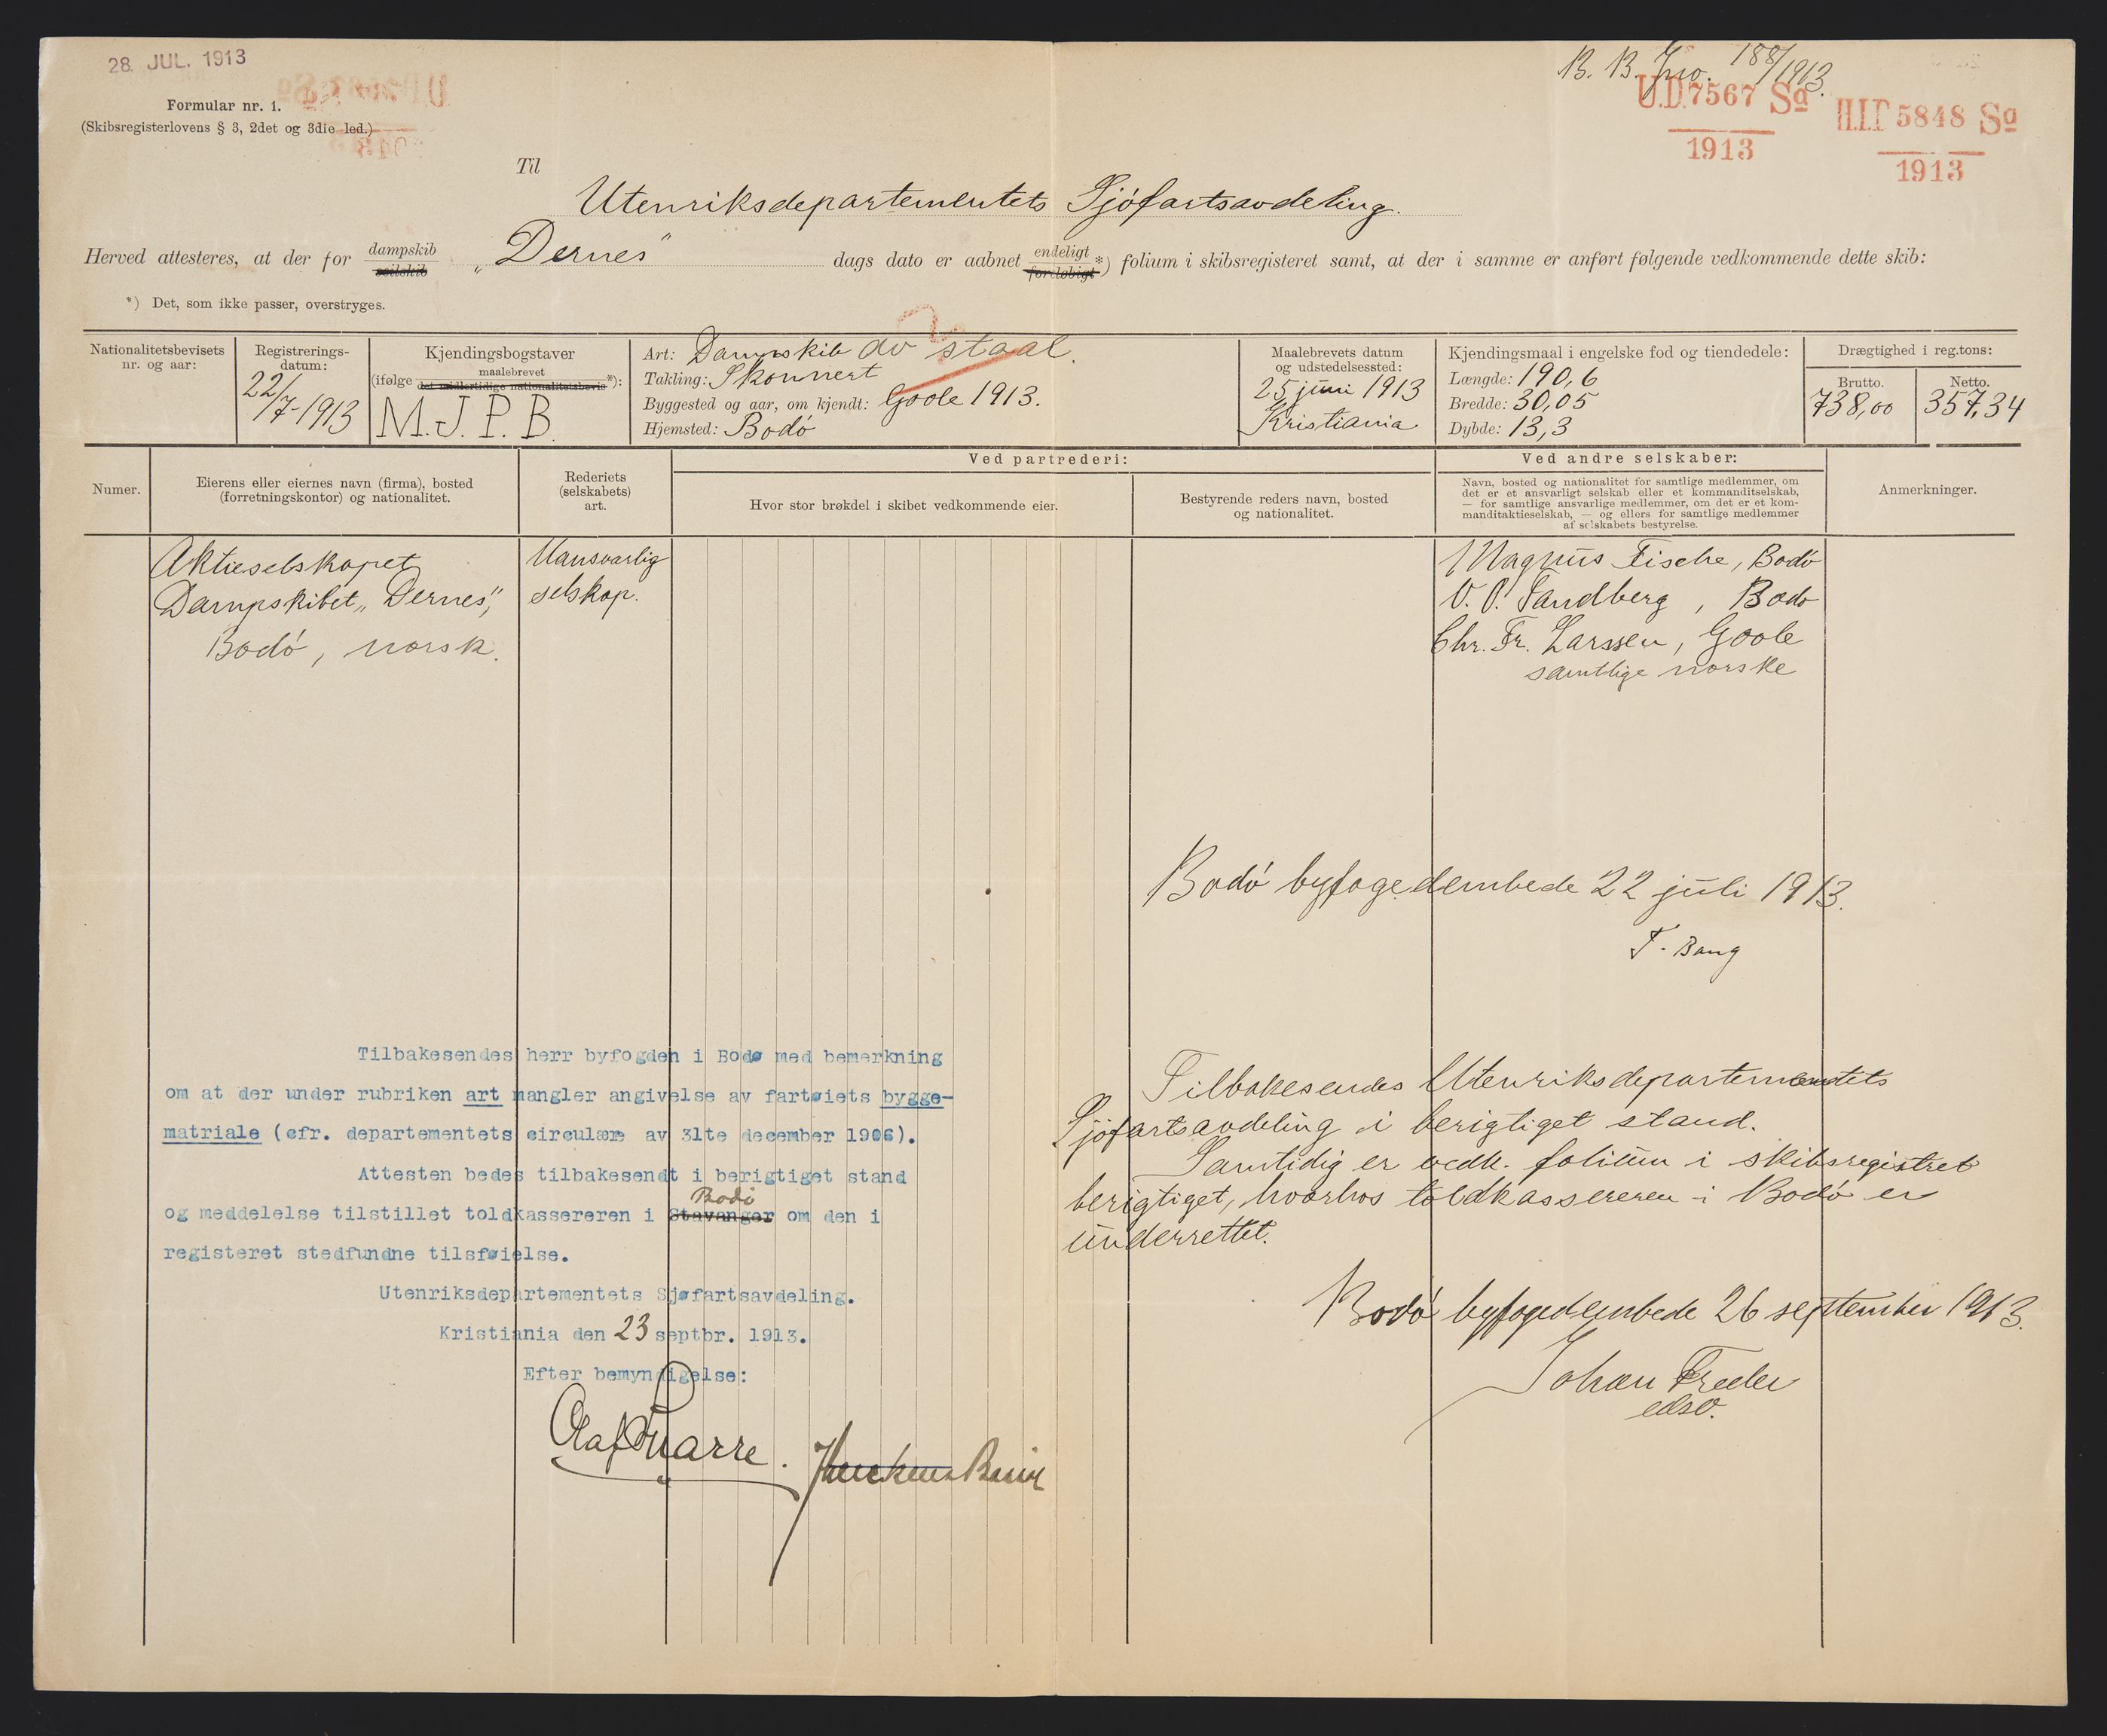 28. JUL. 1913
Formular nr. 1.
(Skibsregisterlovens § 3, 2det og 3die led.)
B. B. Jno. 188/1913.
U.D. 7567 Sa
1913
5848 Sa
1913
Til
Utenriksdepartementets Sjøfartsavdeling.
Herved attesteres, at der for dampskib seilskib „Dernes" dags dato er aabnet endeligt foreløbigt *) folium i skibsregisteret samt, at der i samme er anført følgende vedkommende dette skib:
*) Det, som ikke passer, overstryges.
Nationalitetsbevisets
nr. og aar:
Registrerings-
datum:
22/7-1913
Kjendingsbogstaver
(ifølge maalebrevet det midlertidige nationalitetsbevis *):
M.J.P.B.
Art: Dampskib av staal.
Takling: Skonnert
Byggested og aar, om kjendt: Goole 1913.
Hjemsted: Bodö
Maalebrevets datum
og udstedelsessted:
25 juni 1913
Kristiania
Kjendingsmaal i engelske fod og tiendedele:
Længde: 190,6
Bredde: 30,05
Dybde: 13,3
Drægtighed i reg.tons:
Brutto.
738,00
Netto.
357,34
Numer.
Eierens eller eiernes navn (firma), bosted
(forretningskontor) og nationalitet.
Rederiets
(selskabets)
art.
Ved partrederi:
Hvor stor brøkdel i skibet vedkommende eier.
Bestyrende reders navn, bosted
og nationalitet.
Ved andre selskaber:
Navn, bosted og nationalitet for samtlige medlemmer, om
det er et ansvarligt selskab eller et kommanditselskab,
— for samtlige ansvarlige medlemmer, om det er et kom-
manditaktieselskab, — og ellers for samtlige medlemmer
af selskabets bestyrelse.
Anmerkninger.
Aktieselskapet
Dampskibet „Dernes",
Bodö, norsk.
Uansvarlig
selskap.
Magnus Fische, Bodö
V. P. Sandberg, Bodö
Chr. Fr. Larssen, Goole
samtlige norske
Bodö byfogedembede 22 juli 1913.
F. Bang
Tilbakesendes herr byfogden i Bodø med bemerkning
om at der under rubriken art mangler angivelse av fartøiets bygge-
matriale (cfr. departementets circulære av 31te december 1906).
Attesten bedes tilbakesendt i berigtiget stand
og meddelelse tilstillet toldkassereren i Stavanger Bodö om den i
registeret stedfundne tilsføielse.
Utenriksdepartementets Sjøfartsavdeling.
Kristiania den 23 septbr. 1913.
Efter bemyndigelse:
Tilbakesendes Utenriksdepartementets
Sjöfartsavdeling i berigtiget stand.
Samtidig er vedk. folium i skibsregistret
berigtiget, hvorhos toldkassereren i Bodö er
underrettet.
Bodö byfogedembede 26 september 1913.
Johan